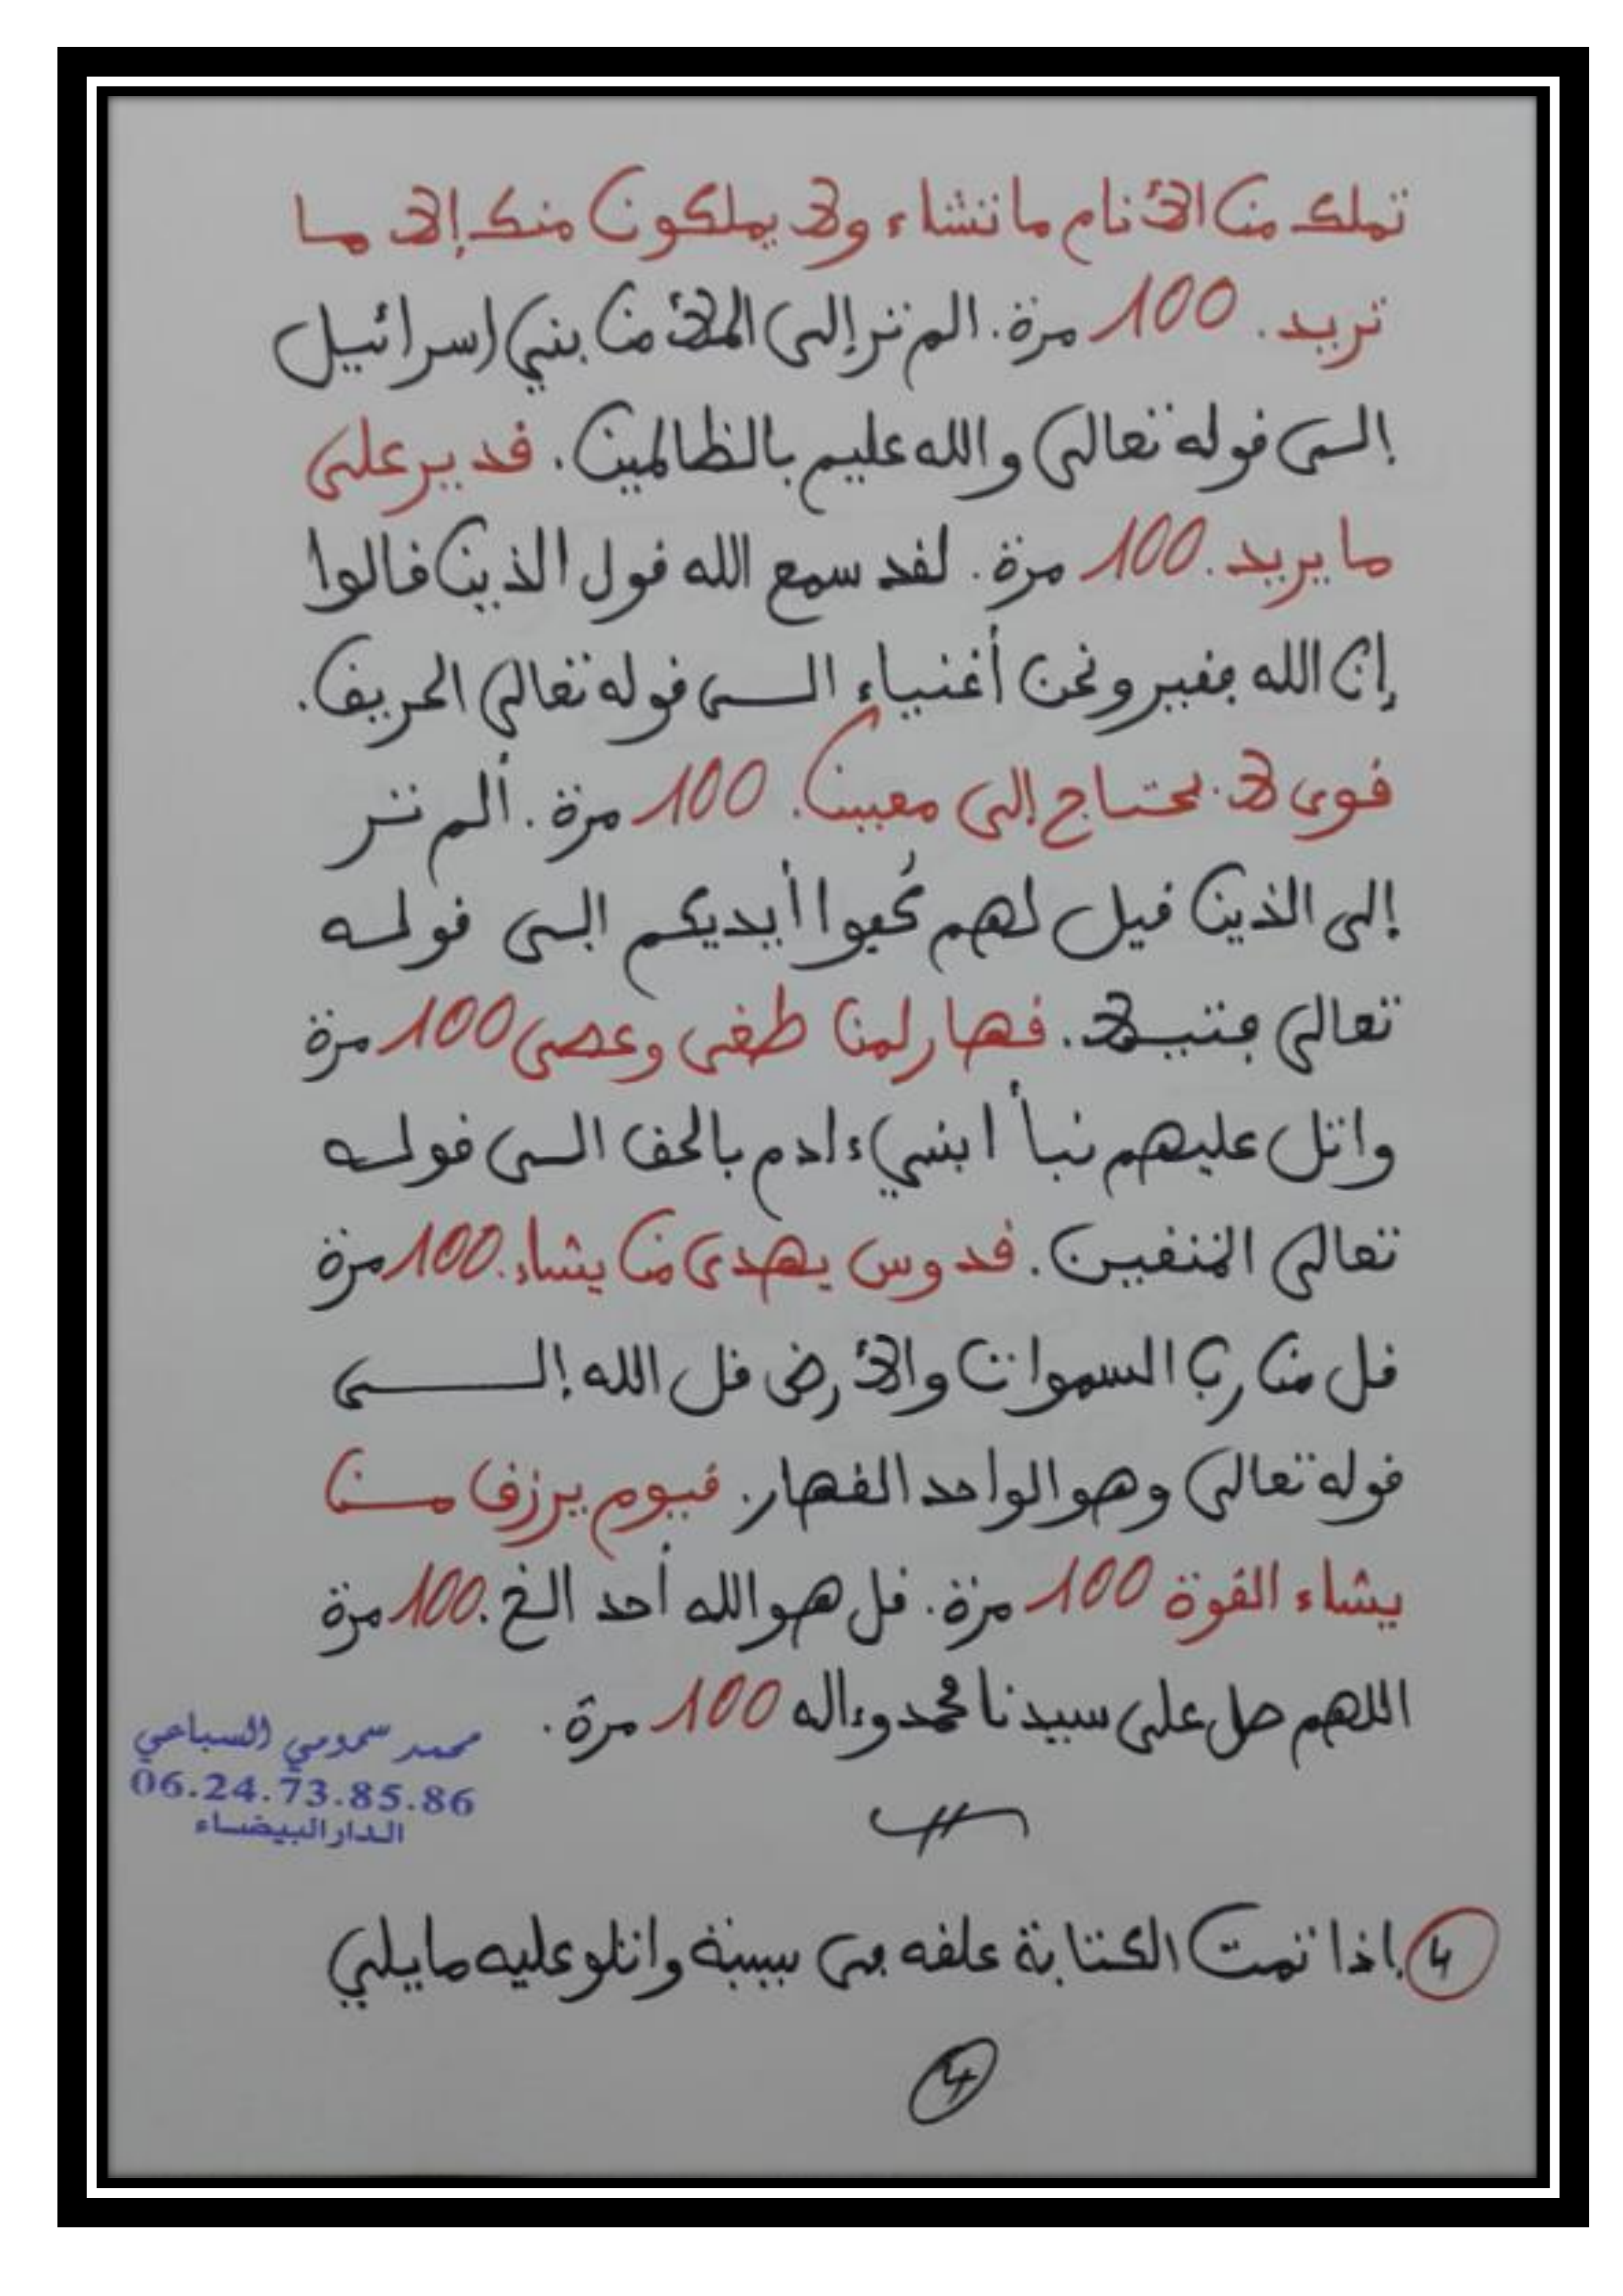 تملك من الأنام ما تشاء ولا يملكون منك إلا ما
تريد . 100 مرة . الم تر إلى الملأ من بني إسرائيل
إلى قوله تعالى والله عليم بالظالمين . قدير على
ما يريد . 100 مرة . لقد سمع الله قول الذين قالوا
إن الله فقير ونحن أغنياء الى قوله تعالى الحريق .
قوى لا يحتاج إلى معين . 100 مرة . ألم تر
إلى الذين قيل لهم كُفوا أيديكم الى قوله
تعالى فتيلا . قهار لمن طغى وعصى 100 مرة
واتل عليهم نبأ ابني ءادم بالحق الى قوله
تعالى المتقين . قدوس يهدى من يشاء . 100 مرة
قل من رب السموات والأرض قل الله إلى
قوله تعالى وهو الواحد القهار . قيوم يرزق من
يشاء القوة 100 مرة . قل هو الله أحد الخ . 100 مرة
اللهم صل على سيدنا محمد وءاله 100 مرة .
محمد سمومي السباعي
06.24.73.85.86
الدار البيضاء
4 إذا تمت الكتابة علقه في سبيبة واتلو عليه مايلي
4